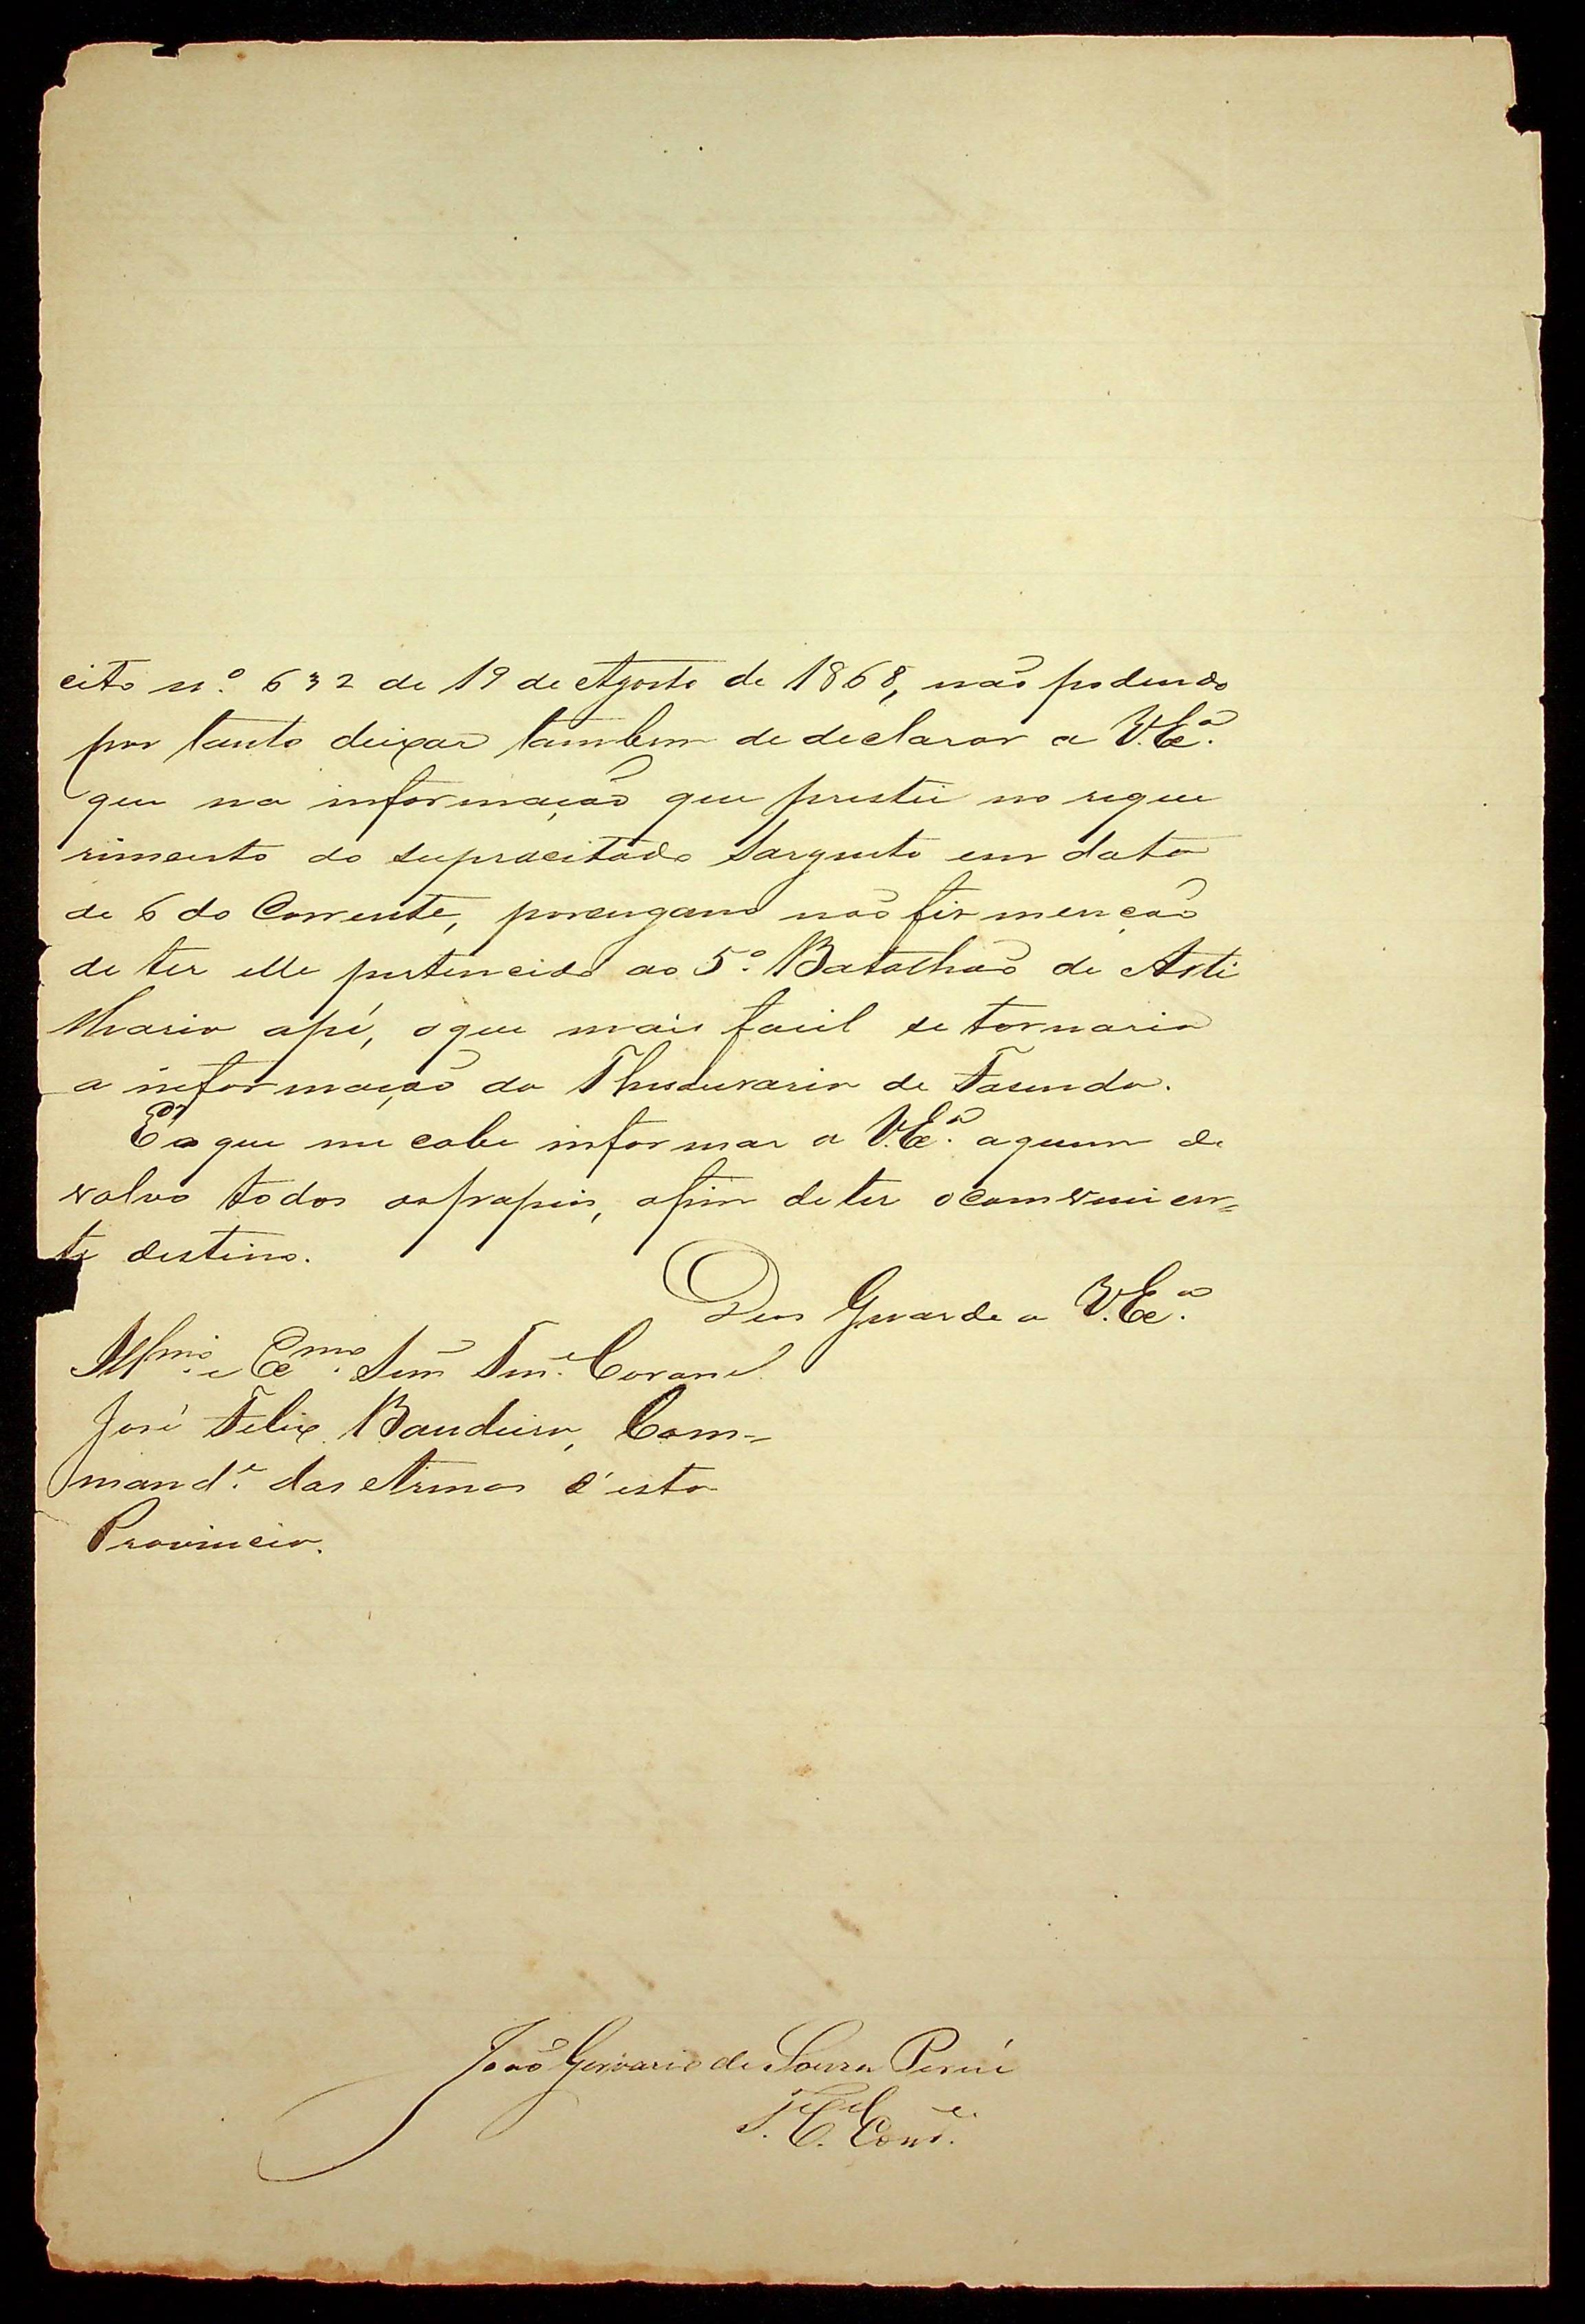 cito n.º 632 de 19 de Agosto de 1868, não podendo
por tanto deixar tambem de declarar a V.Exª.
que na informação que prestei no reque
rimento do supracitado Sargento em data
de 6 do Corrente, porengano não fiz menção
de ter elle pertencido ao 5.º Batalhão de Arti
lharia apé, oque mais facil se tornaria
a informação da Thesouraria de Fasenda.
É o que me cabe informar a V.Exª. aquem de
volvo todos ospapeis, afim deter oconvenien=
te destino.
Deos Guarde a V.Exª.
Illmo. e Exmo. Senr. Ten.e Coronel
José Felix Bandeira, Com=
mand.e das Armas d'esta
Provincia.
João Gervasio de Souza Perné
T.e C.el Com.e